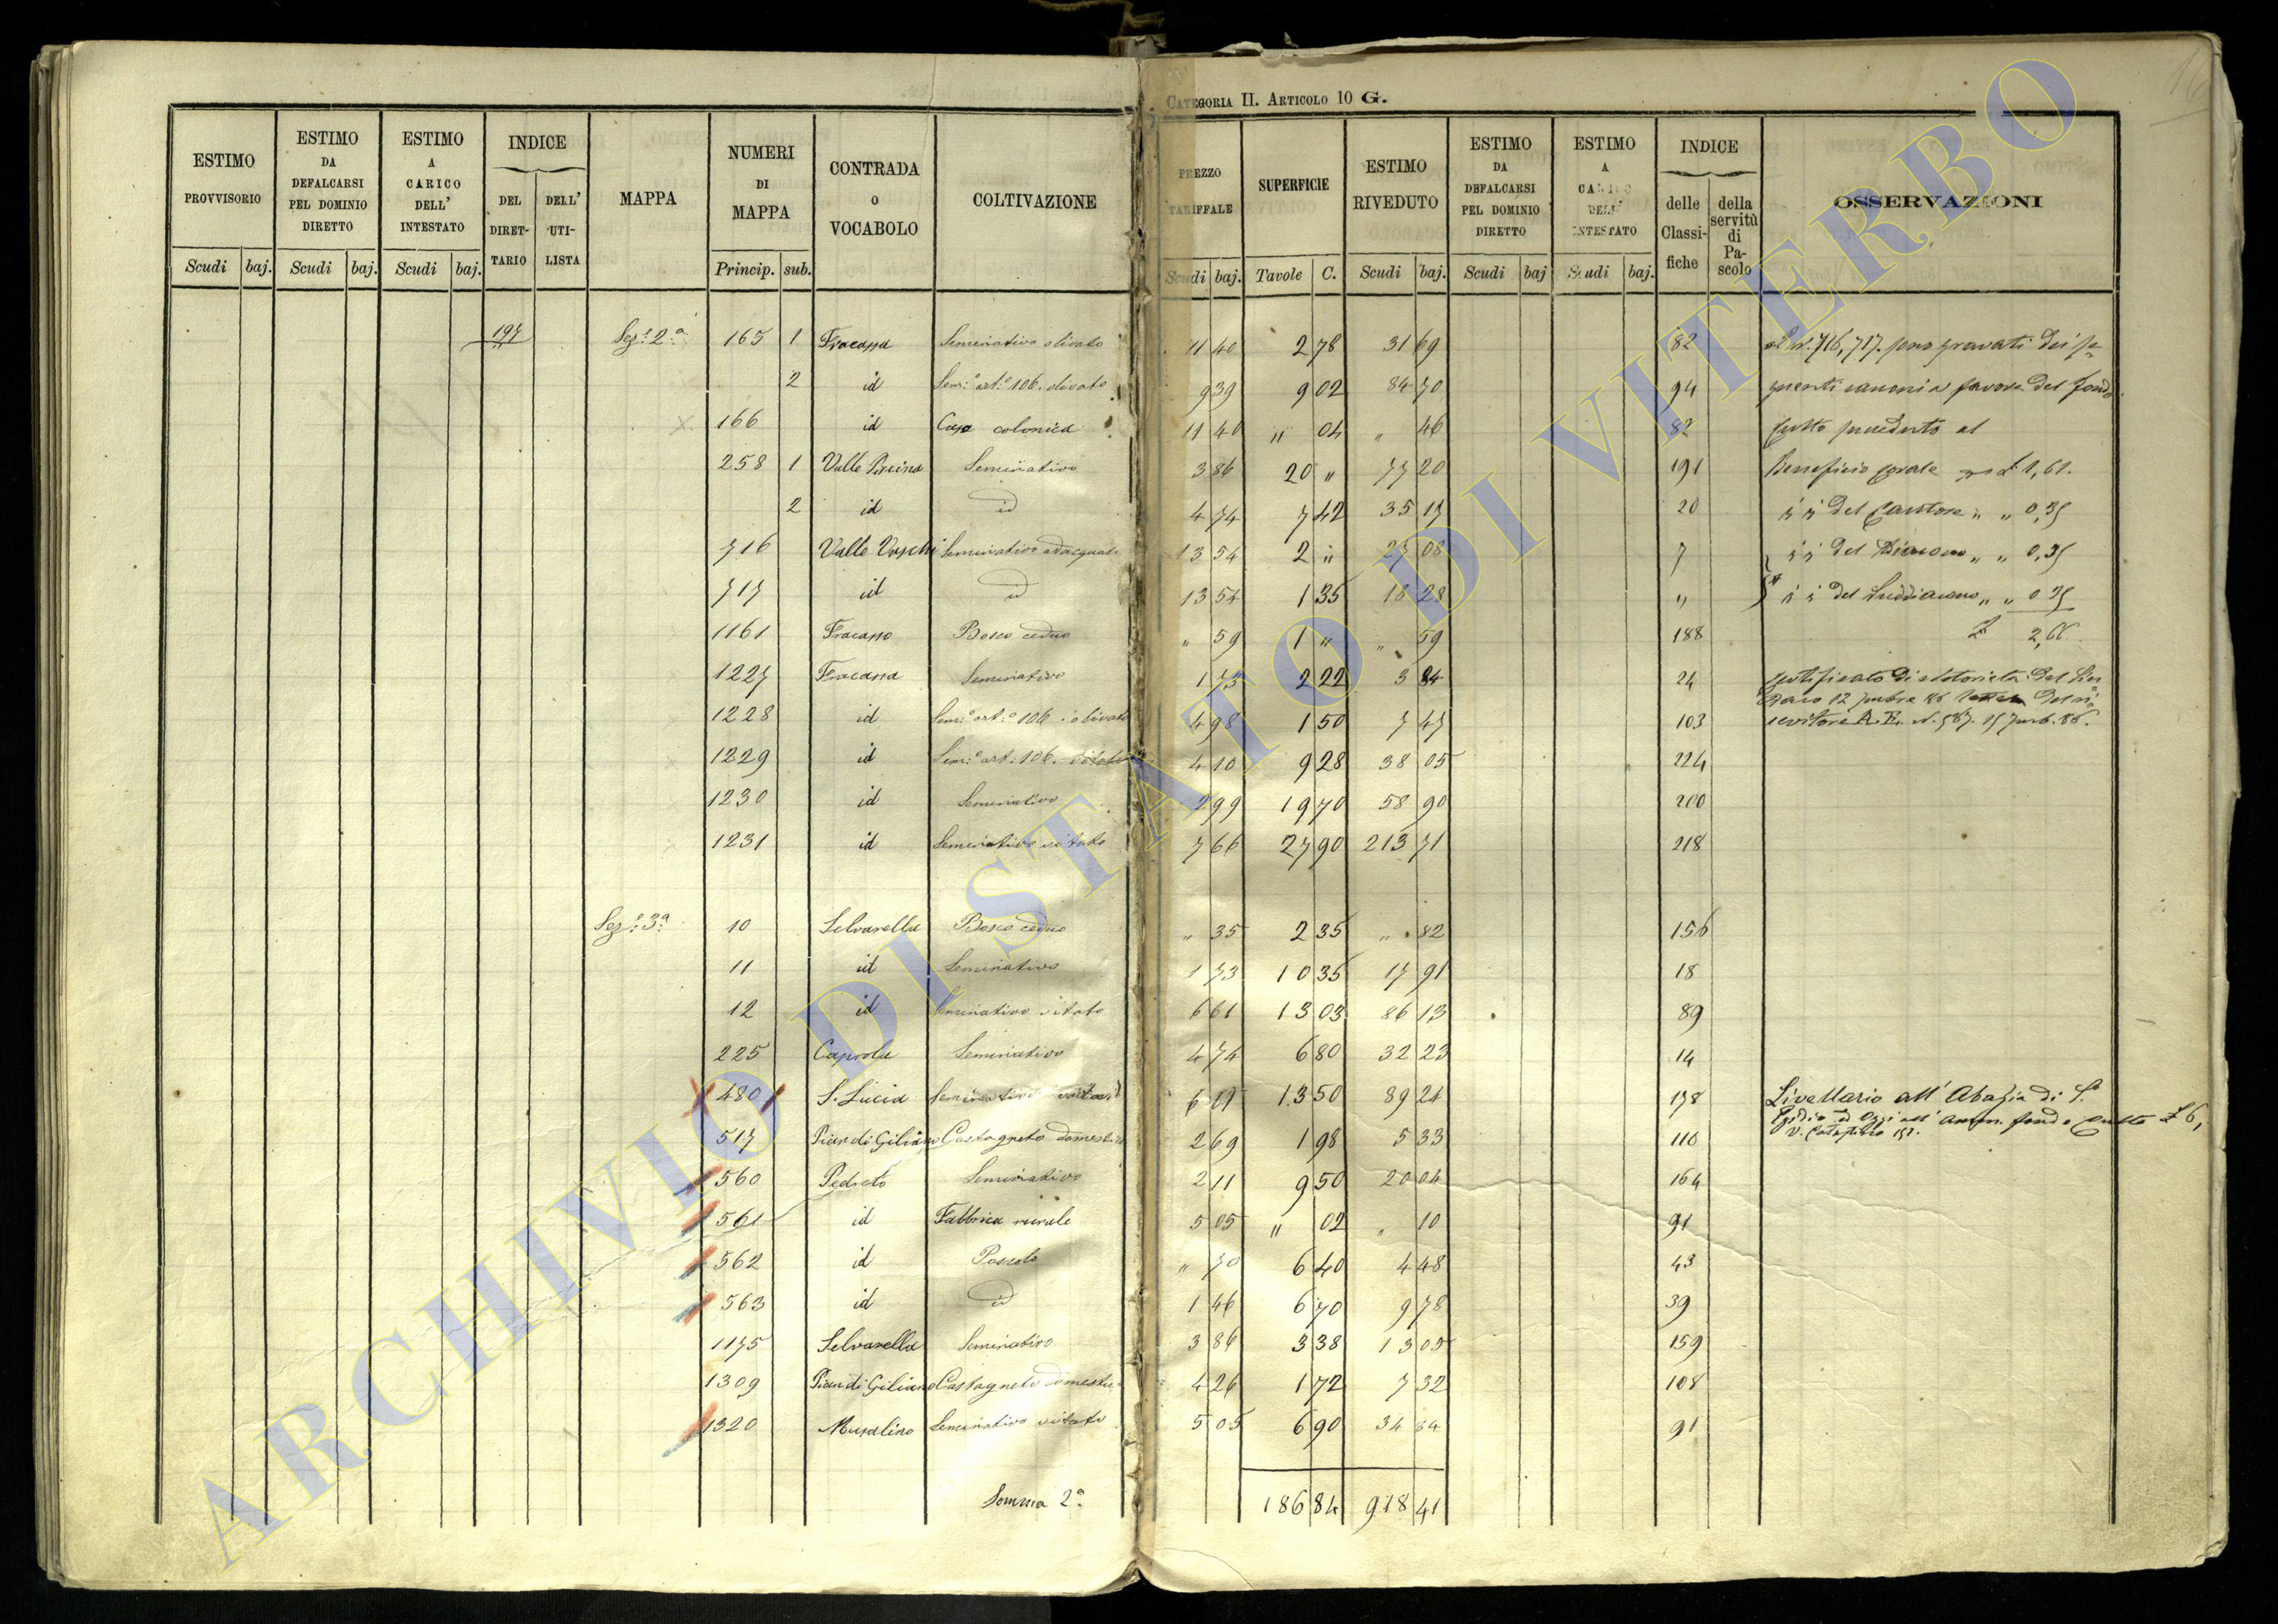 CATEGORIA II. ARTICOLO 10 G.
ESTIMO PROVVISORIO
ESTIMO DA DEFALCARSI PEL DOMINIO DIRETTO
ESTIMO A CARICO DELL' INTESTATO
INDICE
DEL DIRETTARIO
DELL' UTILISTA
MAPPA
NUMERI DI MAPPA
CONTRADA o VOCABOLO
COLTIVAZIONE
PREZZO TARIFFALE
SUPERFICIE
ESTIMO RIVEDUTO
ESTIMO DA DEFALCARSI PEL DOMINIO DIRETTO
ESTIMO A CARICO DELL' INTESTATO
INDICE
delle Classifiche
della servitù di Pascolo
OSSERVAZIONI
Scudi baj. Scudi baj. Scudi baj. Princip. sub. Scudi baj. Tavole C. Scudi baj. Scudi baj Scudi baj.
197 Sez.e 2a 165 1 Fracassa Seminativo olivato 11 40 2 78 31 69 82
2 id Sem.o art.o 106. olivato 9 39 9 02 84 70 94
166 id Casa colonica 11 40 " 04 " 46 82
258 1 Valle Piscina Seminativo 3 86 20 " 77 20 191
2 id id 4 74 7 42 35 17 20
716 Valle Vaschi Seminativo adacquato 13 54 2 " 27 08 7
717 id id 13 54 1 35 18 28 "
1161 Fracasso Bosco ceduo " 59 1 " " 59 188
1227 Fracassa Seminativo 1 73 2 22 3 84 24
1228 id Sem.o art.o 106. olivato 4 98 1 50 7 47 103
1229 id Sem.o art. 106. vitato 4 10 9 28 38 05 224
1230 id Seminativo 2 99 19 70 58 90 200
1231 id Seminativo vitato 7 66 27 90 213 71 218
Sez.e 3a 10 Selvarella Bosco ceduo " 35 2 35 " 82 156
11 id Seminativo 1 73 10 35 17 91 18
12 id Seminativo vitato 6 61 13 03 86 13 89
225 Caprola Seminativo 4 74 6 80 32 23 14
480 S. Lucia Seminativo vitato 6 61 13 50 89 24 178
517 Pian di Giliano Castagneto domestico 2 69 1 98 5 33 110
560 Pedreto Seminativo 2 11 9 50 20 04 164
561 id Fabbrica rurale 5 05 " 02 " 10 91
562 id Pascolo " 70 6 40 4 48 43
563 id id 1 46 6 70 9 78 39
1175 Selvarella Seminativo 3 86 3 38 13 05 159
1309 Pian di Giliano Castagneto domestico 4 26 1 72 7 32 108
1320 Musalino Seminativo vitato 5 05 6 90 34 84 91
Somma 2a 186 84 918 41
716, 717. sono gravati dei se-
guenti canoni a favore del fondo
Culto preceduto al
Beneficio £ 1,61.
del Cantore " " 0,35
del Diacono " " 0,35
del Suddiacono " " 0 35
£ 2,66
Livellario all' Abazia di S.
fondo Culto £ 6,
ARCHIVIO DI STATO DI VITERBO